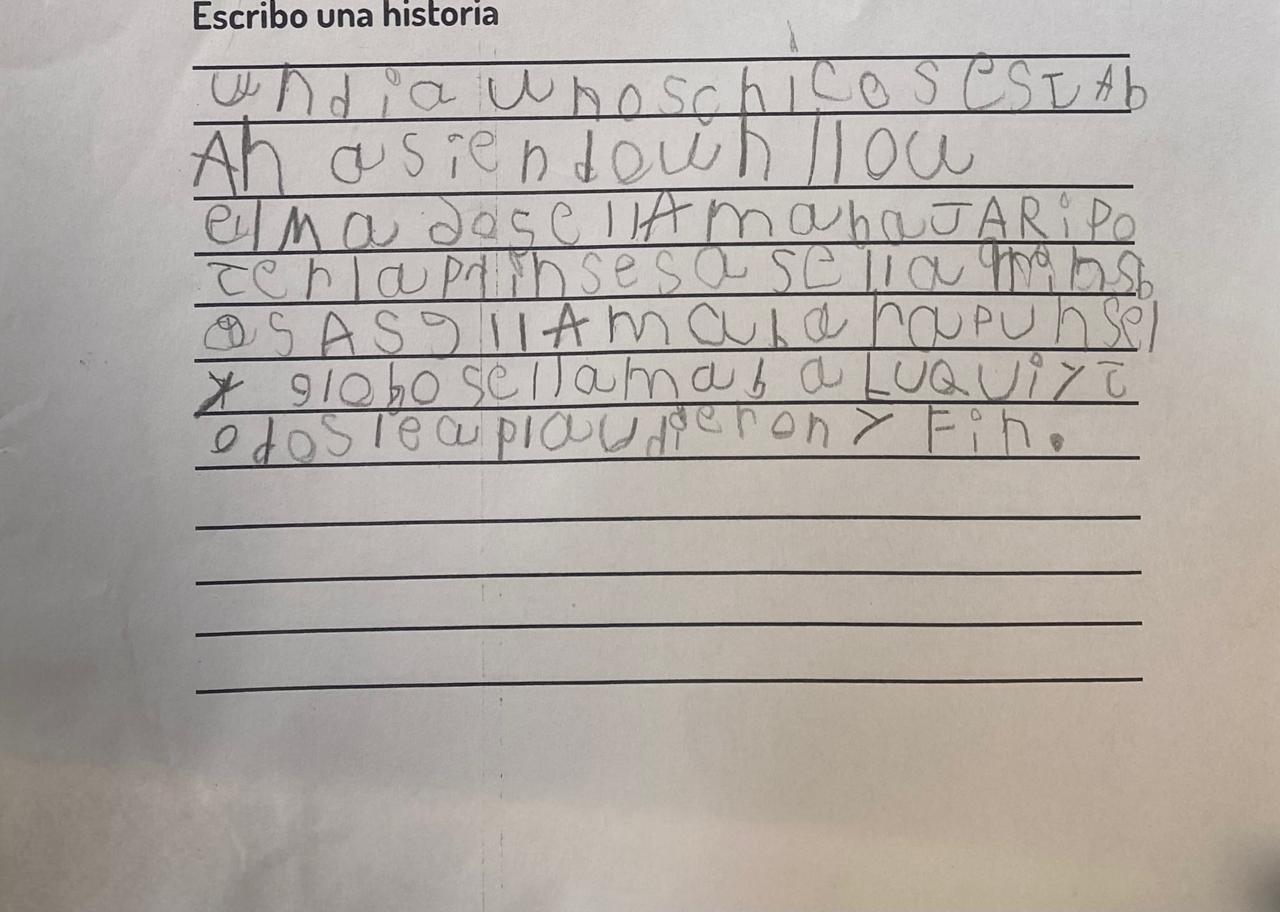 Escribo una historia
un dia unos chicos estAb
An asiendo un llou
el Mado se llAmaba JARiPo
ter la prinsesa se lla
se llAmaba rapunsel
globo se llamaba LUQUi y t
odos le aplaudieron y Fin.